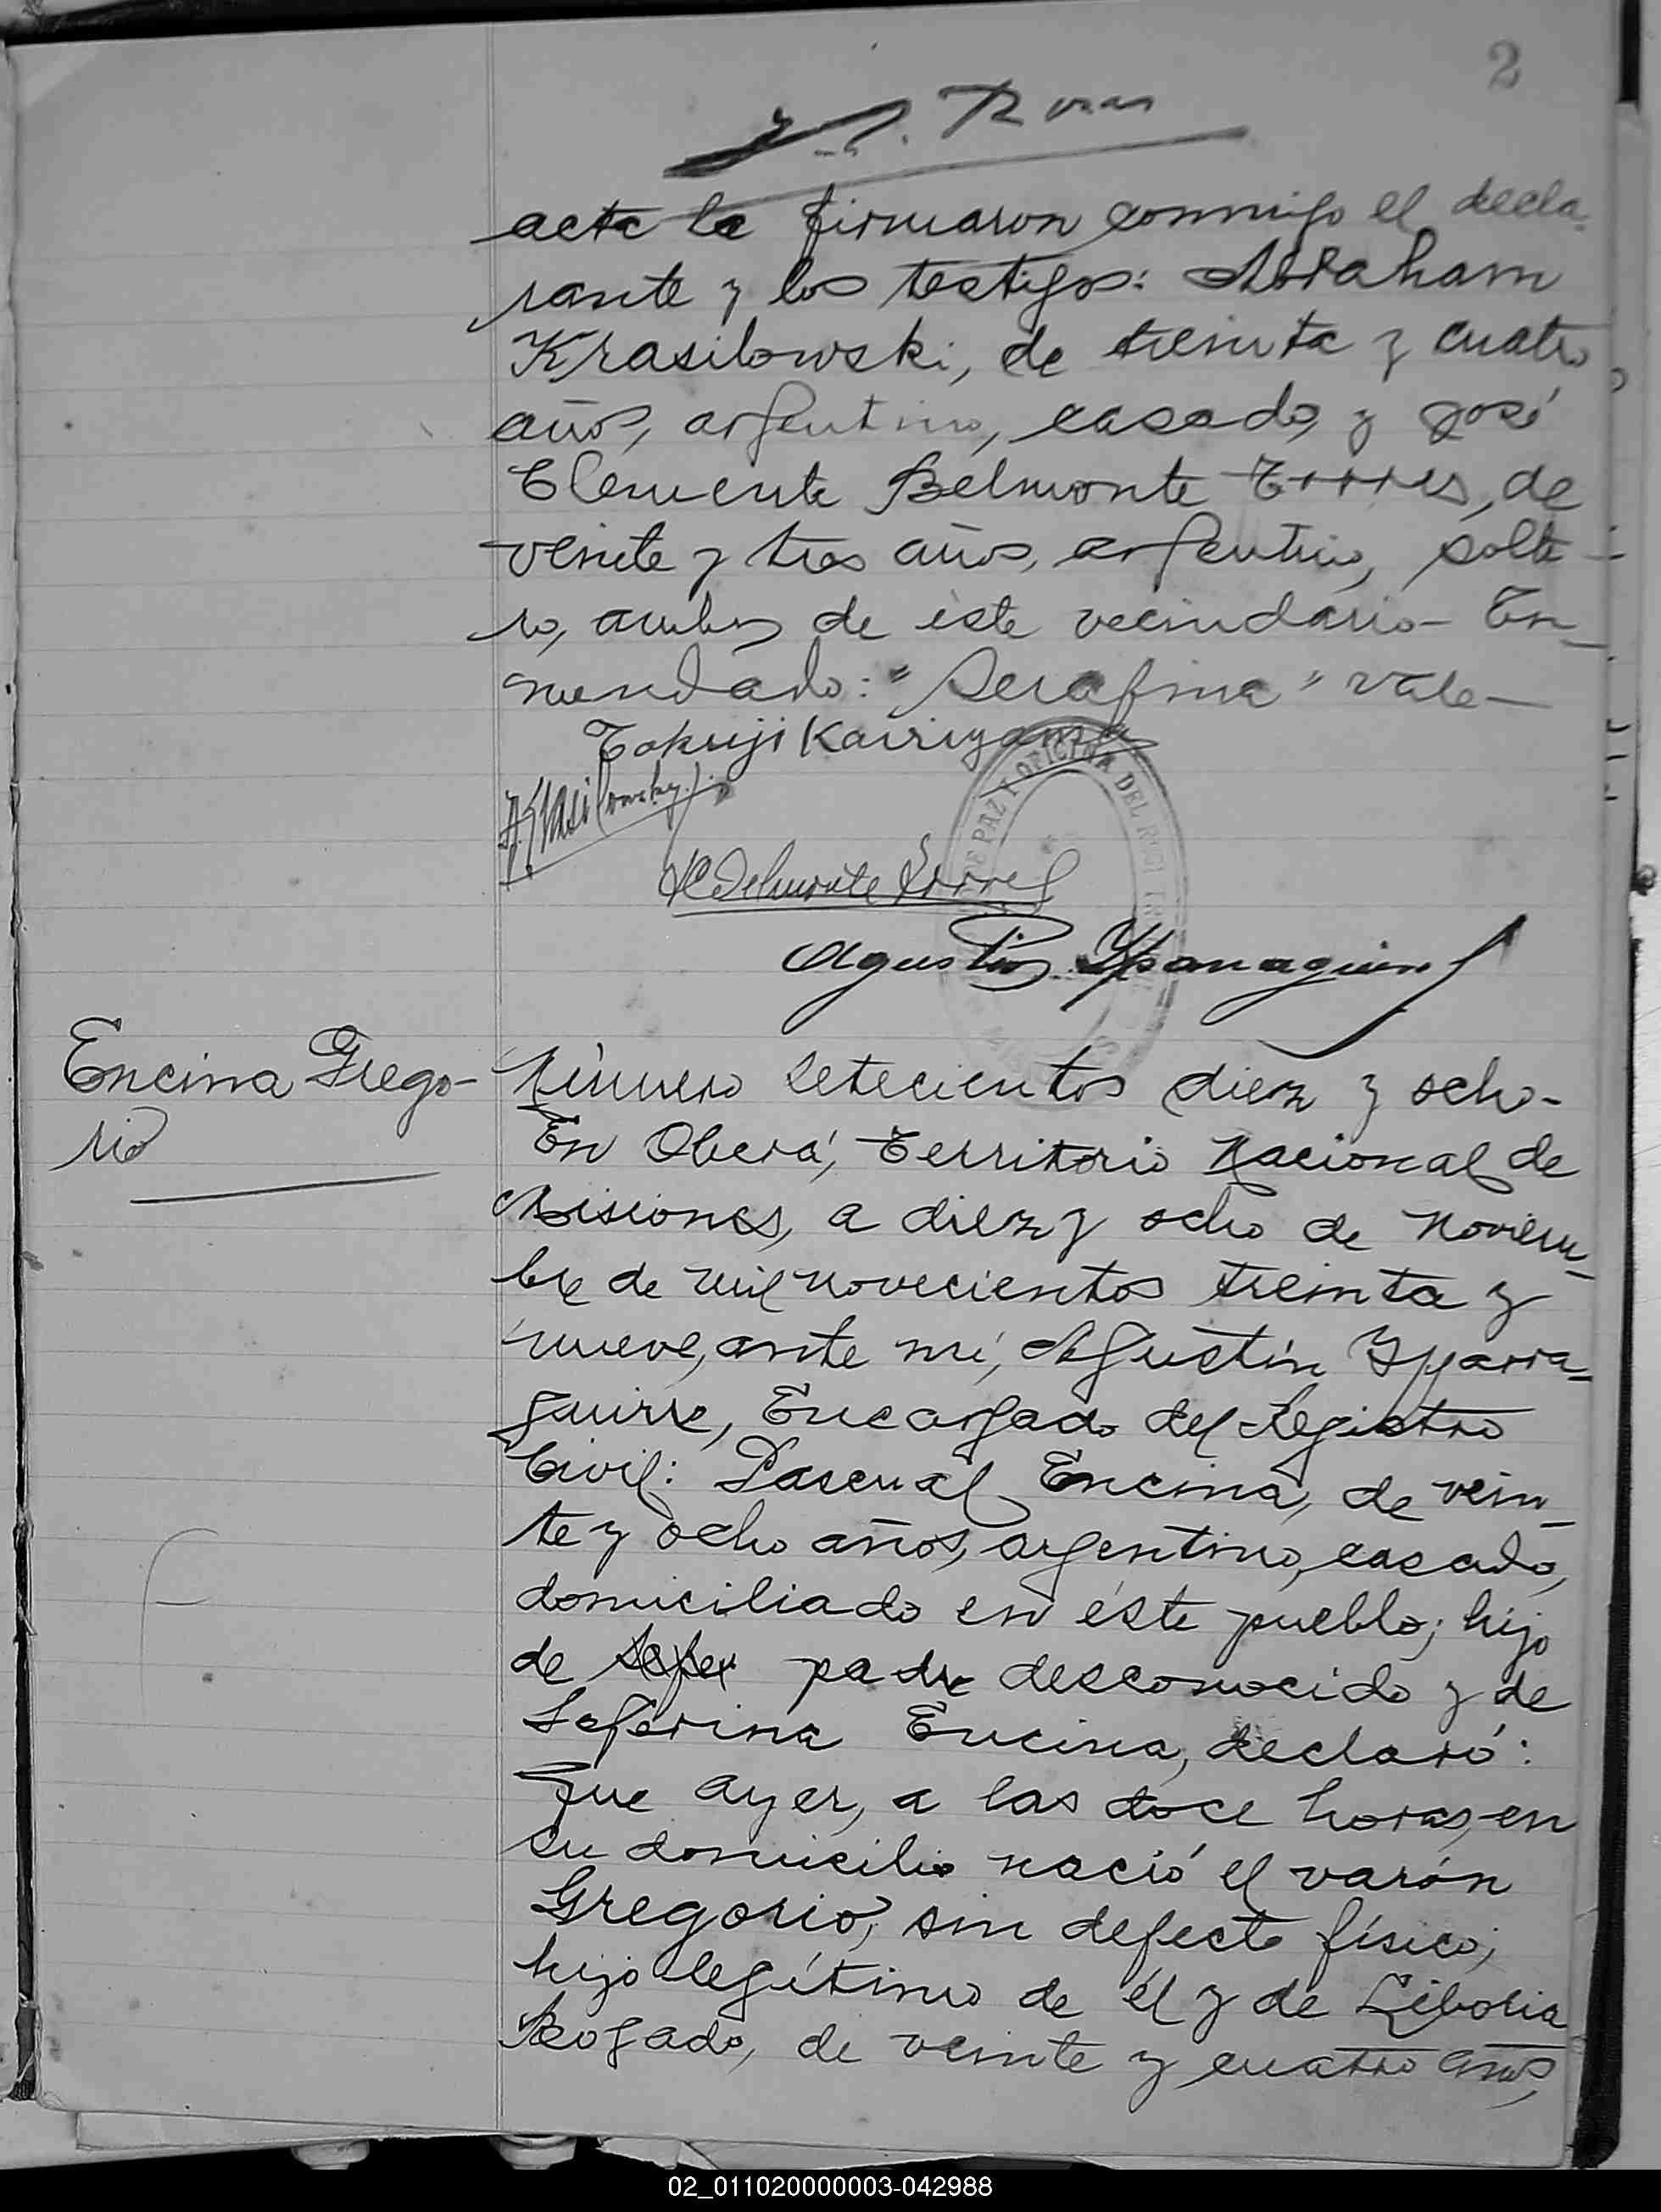 2
acta la firmaron conmigo el decla-
rante y los testigos: Abraham
Krasilowski, de treinta y cuatro
años, argentino, casado, y José
Clemente Belmonte Torres, de
veinte y tres años, argentino, solte-
ro, ambos de éste vecindario - En-
mendado: "Serafina" vale -
Tokuji Kairiyama
JCBelmonte Torres
DE PAZ Y OFICINA DEL
Agustín Yparraguirre
Encina Grego-
rio
Número setecientos diez y ocho -
En Oberá, Territorio Nacional de
Misiones, a diez y ocho de Noviem-
bre de mil novecientos treinta y
nueve, ante mí, Agustín Yparra-
guirre, Encargado del Registro
Civil: Pascual Encina, de vein-
te y ocho años, argentino, casado,
domiciliado en éste pueblo; hijo
de padre desconocido y de
Seferina Encina, declaró:
Que ayer, a las doce horas, en
su domicilio nació el varón
Gregorio, sin defecto físico;
hijo legítimo de él y de Liboria
Rogado, de veinte y cuatro años,
02_011020000003-042988